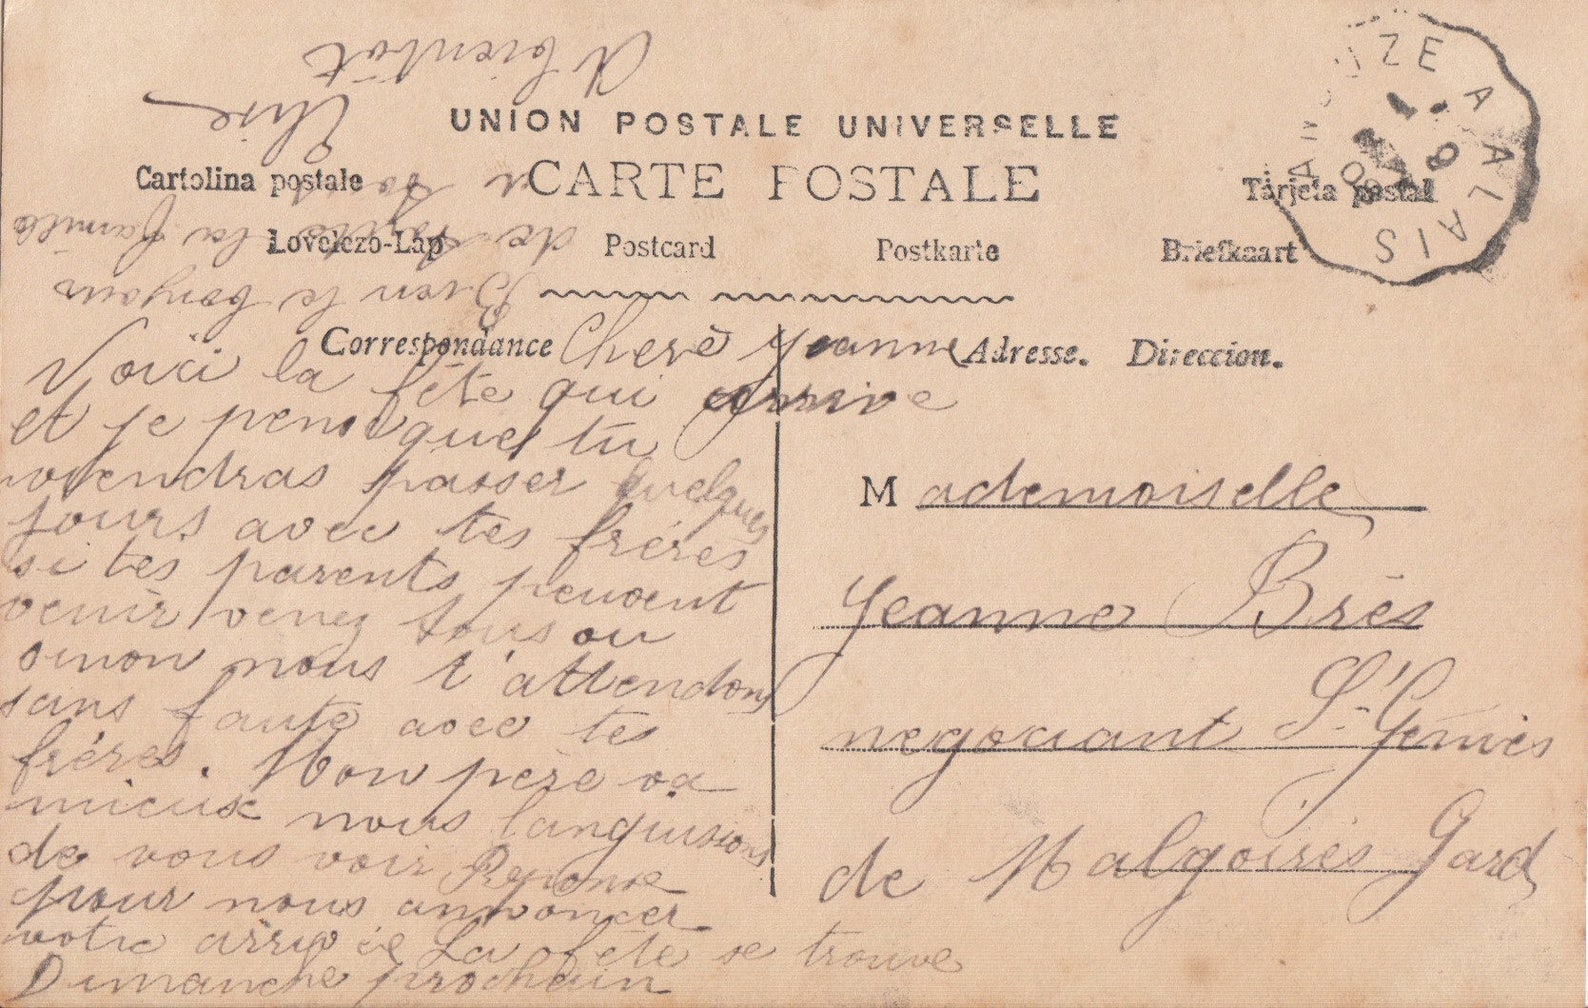 UNION POSTALE UNIVERSELLE
CARTE POSTALE
Cartolina postale
Tarjeta postal
Levelezo-Lap
Postcard
Postkarte
Briefkaart
Correspondance
Adresse. Direccion.
UZE A ALAIS
Chere Jeanne
Voici la fête qui arrive
et je pense que tu
viendras passer quelques
jours avec tes frères
si tes parents peuvent
venir venez tous ou
sinon nous t'attendons
sans faute avec tes
frères. Mon père va
mieux nous languissons
de vous voir Reponse
pour nous annoncer
votre arrivée La fête se trouve
Dimanche prochain
Bien le bonjour
de toute la famille
a tous
Elise
A bientôt
Mademoiselle
Jeanne Brès
negociant St Geniès
de Malgoirès Gard